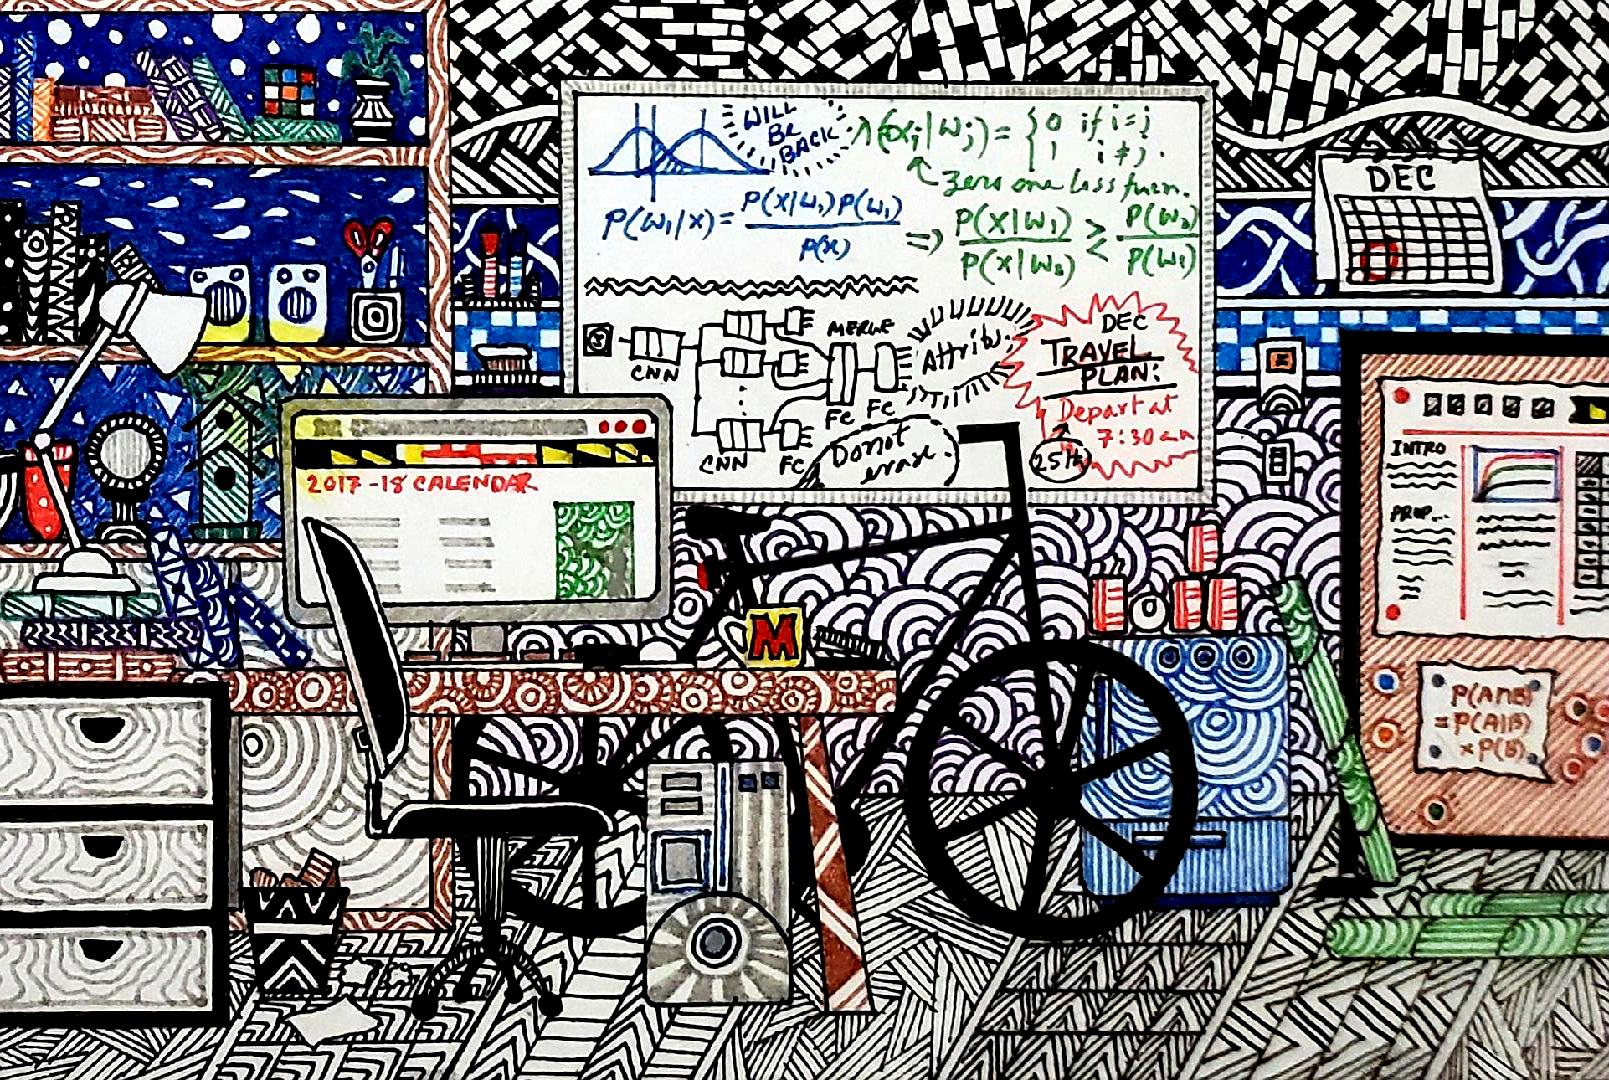 WILL
BE
BACK
λ(αi|ωj) = { 0 if i=j
1 i≠j.
Zero one loss
P(ω1|x) = P(x|ω1)P(ω1)
P(x)
=> P(x|ω1) ≷ P(ω2)
P(x|ω2) P(ω1)
DEC
CNN
MERGE
FC FC
CNN FC
Attrib.
Do not
erase.
DEC
TRAVEL
PLAN:
Depart at
7:30 am
25th
2017-18 CALENDAR
M
INTRO
PROP...
P(A∩B)
= P(A|B)
× P(B)